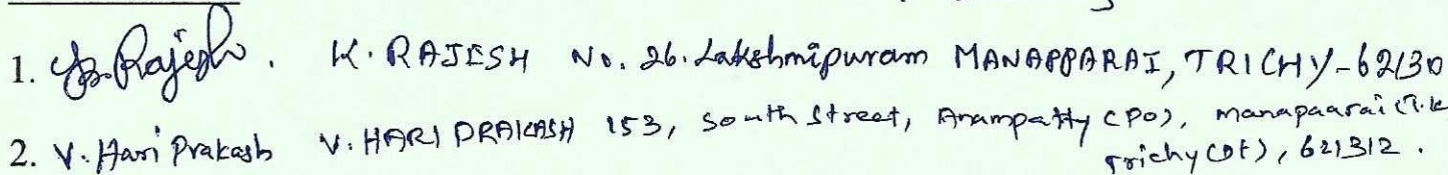 1. K. Rajesh. K. RAJESH No. 26. Lakshmipuram MANAPPARAI, TRICHY-62130
2. V. Hari Prakash V. HARI PRAKASH 153, South Street, Anampatty (PO), Manapaarai (T.k
Trichy (Dt), 621312.